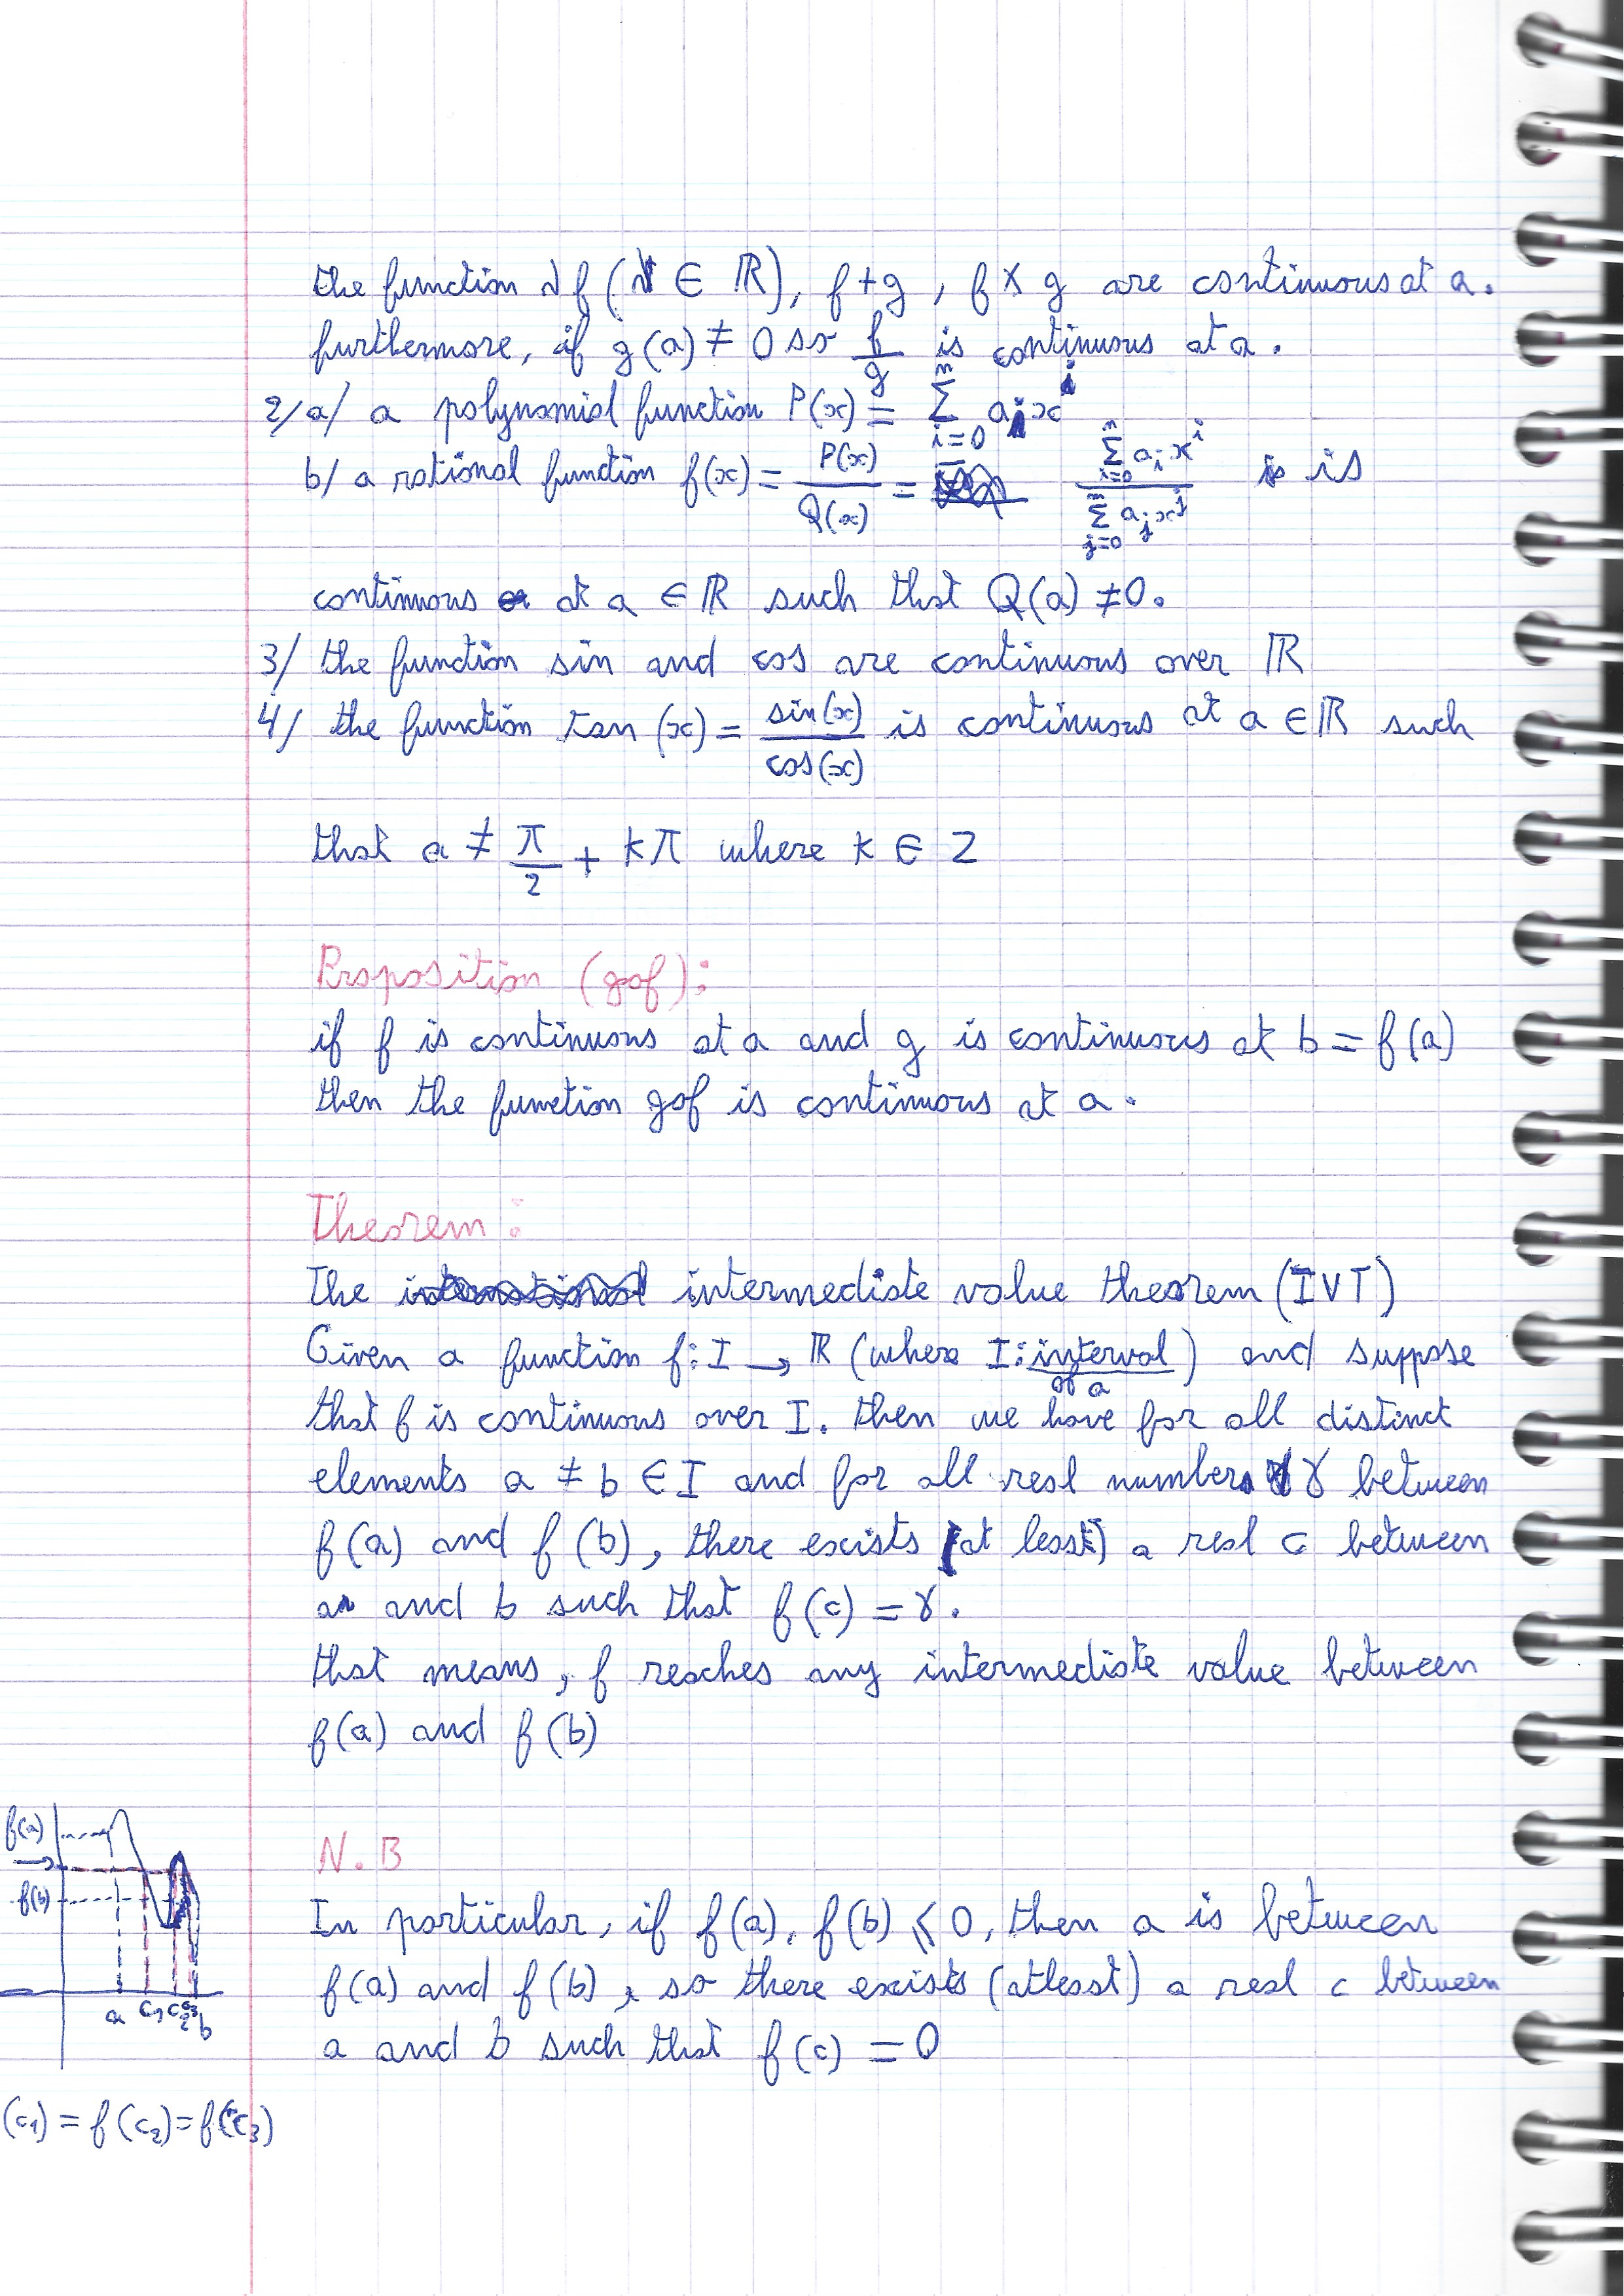 the function λf (λ ∈ ℝ), f+g, f×g are continuous at a.
furthermore, if g(a) ≠ 0 so f/g is continuous at a.
2/a/ a polynomial function P(x) = ∑_{i=0}^{n} a_i x^i
b/ a rational function f(x) = P(x)/Q(x) = ∑_{i=0}^{n} a_i x^i / ∑_{j=0}^{m} a_j x^j is
continuous at a ∈ ℝ such that Q(a) ≠ 0.
3/ the function sin and cos are continuous over ℝ
4/ the function tan(x) = sin(x)/cos(x) is continuous at a ∈ ℝ such
that a ≠ π/2 + kπ where k ∈ Z
Proposition (gof):
if f is continuous at a and g is continuous at b = f(a)
then the function gof is continuous at a.
Theorem:
The intermediate value theorem (IVT)
Given a function f: I → ℝ (where I: interval of a) and suppose
that f is continuous over I. then we have for all distinct
elements a ≠ b ∈ I and for all real numbers γ between
f(a) and f(b), there exists (at least) a real c between
a and b such that f(c) = γ.
that means, f reaches any intermediate value between
f(a) and f(b)
N.B
In particular, if f(a). f(b) ⩽ 0, then a is between
f(a) and f(b), so there exists (atleast) a real c between
a and b such that f(c) = 0
f(a)
f(b)
a c1 c2 c3 b
(c1) = f(c2) = f(c3)